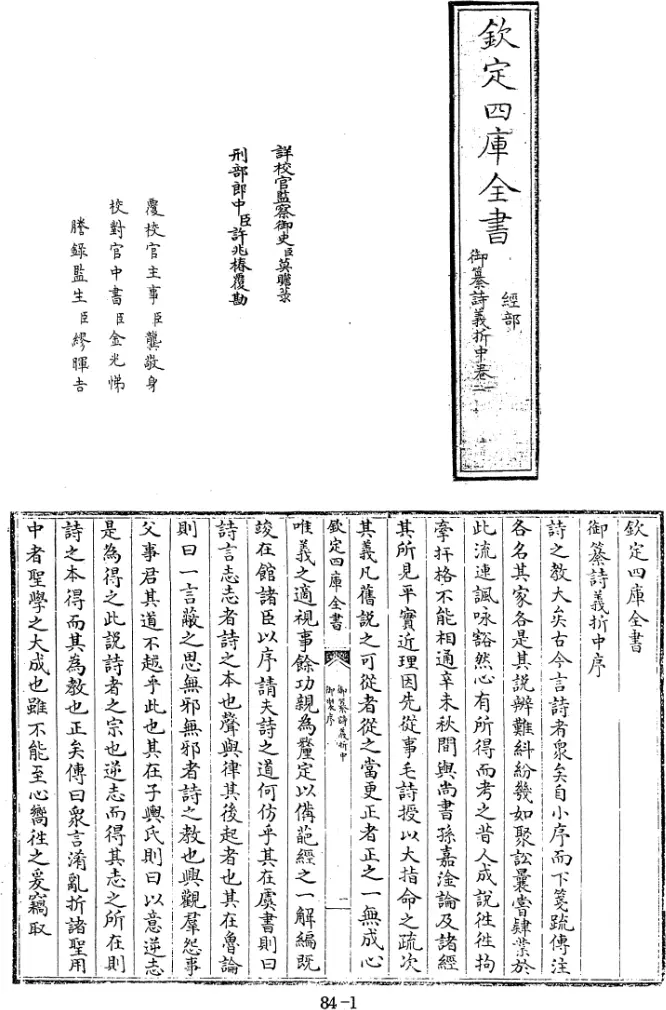 欽定四庫全書
經部
御纂詩義折中卷一
詳校官監察御史臣莫瞻菉
刑部郎中臣許兆椿覆勘
覆校官主事臣龔敬身
校對官中書臣金光悌
謄錄監生臣繆暉吉
欽定四庫全書
御纂詩義折中序
詩之教大矣古今言詩者衆矣自小序而下箋疏傳注
各名其家各是其說辨難糾紛幾如聚訟曩嘗肄業於
此流連諷咏豁然心有所得而考之昔人成說徃徃拘
牽扞格不能相通辛未秋間與尚書孫嘉淦論及諸經
其所見平實近理因先從事毛詩授以大指命之疏次
其義凡舊說之可從者從之當更正者正之一無成心
欽定四庫全書
御纂詩義折中
御製序
一
唯義之適視事餘功親為釐定以備葩經之一解編既
竣在館諸臣以序請夫詩之道何仿乎其在虞書則曰
詩言志志者詩之本也聲與律其後起者也其在魯論
則曰一言蔽之思無邪無邪者詩之教也興觀羣怨事
父事君其道不越乎此也其在子輿氏則曰以意逆志
是為得之此說詩者之宗也逆志而得其志之所在則
詩之本得而其為教也正矣傳曰衆言淆亂折諸聖用
中者聖學之大成也雖不能至心嚮徃之爰竊取
84-1